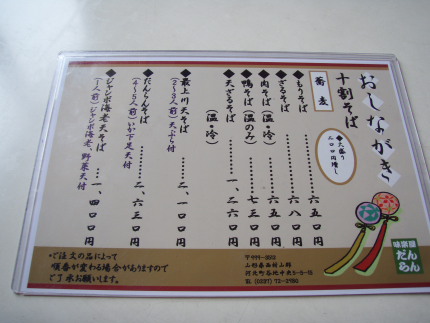 おしながき
十割そば
蕎麦
◆大盛り
円増し
◆もりそば………六五〇円
◆ざるそば………六八〇円
◆肉そば(温・冷)………
◆鴨そば(温のみ)………七三〇円
◆天ざるそば………一、二六〇円
(温・冷)
◆最上川天そば………二、一〇〇円
(2～3人前)天ぷら付
◆だんらんそば………二、六三〇円
(4～5人前)いか下足天付
◆ジャンボ海老天そば…一、四〇〇円
(1人前)ジャンボ海老、野菜天付
・ご注文の品によって
順番が変わる場合がありますので
ご了承お願いします。
山形県西村山郡
河北町谷地中央5-8-15
味楽屋
だんらん